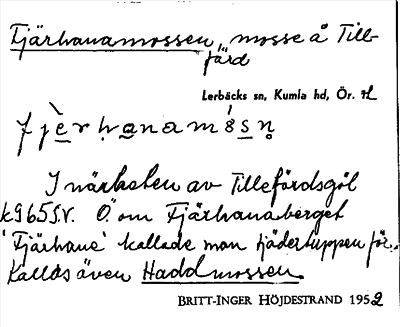 Fjärhanamossen, mosse å Till-
färd
Lerbäcks sn, Kumla hd, Ör. l
fjèrhanamósn
I närheten av Tillefärdsgöl
k965 S.V. Ö om Fjärhanaberget
'Fjärhane' kallade man tjädertuppen för.
Kallas även Haddmossen.
BRITT-INGER HÖJDESTRAND 1952